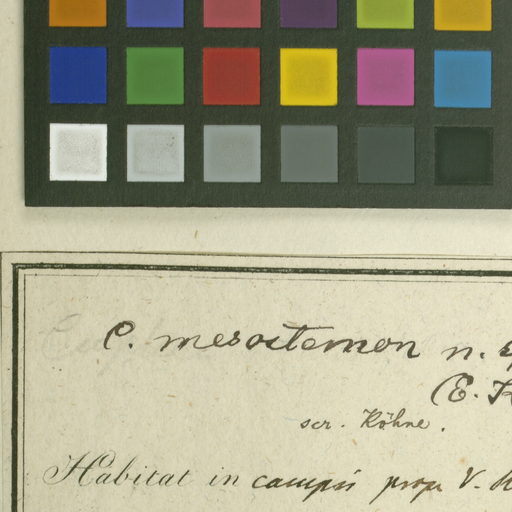 C. mesostemon n.
(E.
scr. Köhne.
Habitat in campis prope V.